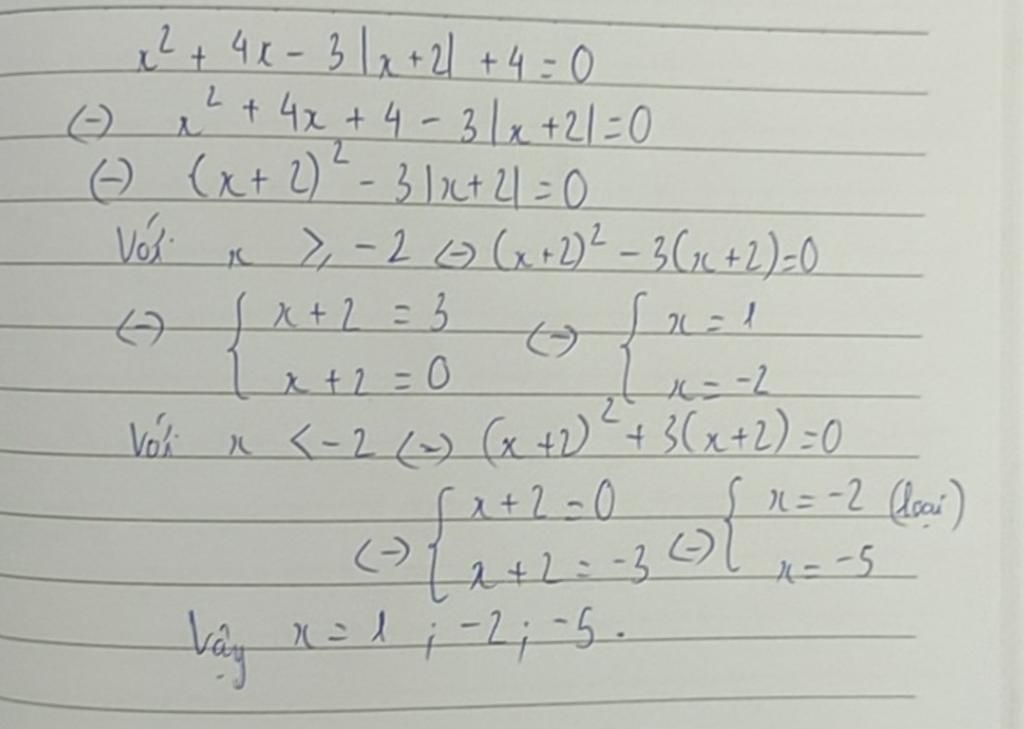 x² + 4x - 3|x+2| + 4 = 0
(-) x² + 4x + 4 - 3|x+2| = 0
(-) (x+2)² - 3|x+2| = 0
Với x ⩾ -2 (-) (x+2)² - 3(x+2) = 0
(-) { x+2 = 3 (-) { x = 1
x+2 = 0 x = -2
Với x < -2 (-) (x+2)² + 3(x+2) = 0
(-) { x+2 = 0 (-) { x = -2 (loại)
x+2 = -3 x = -5
Vậy x = 1 ; -2 ; -5 .